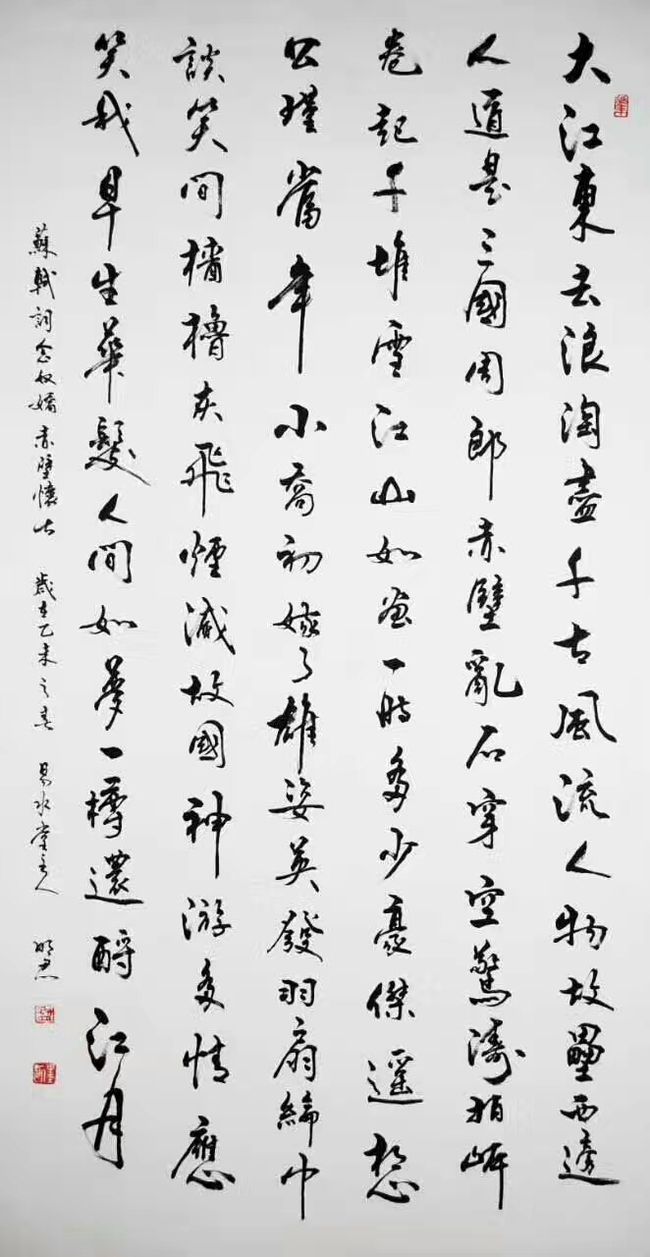 大江東去浪淘盡千古風流人物故壘西邊
人道是三國周郎赤壁亂石穿空驚濤拍岸
卷起千堆雪江山如畫一時多少豪傑遥想
公瑾當年小喬初嫁了雄姿英發羽扇綸巾
談笑間檣櫓灰飛煙滅故國神游多情應
笑我早生華髮人間如夢一樽還酹江月
蘇軾詞念奴嬌赤壁懷古 歲在乙未之春 易水堂主人